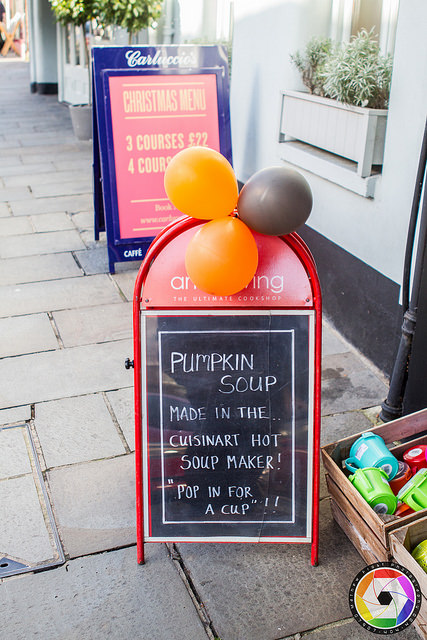 Carluccio's
CHRISTMAS MENU
3 COURSES £22
4 COUR
Book
www.
CAFFÉ
THE ULTIMATE COOKSHOP
PUMPKIN
SOUP
MADE IN THE..
CUISINART HOT
SOUP MAKER!
"POP IN FOR
A CUP"!!